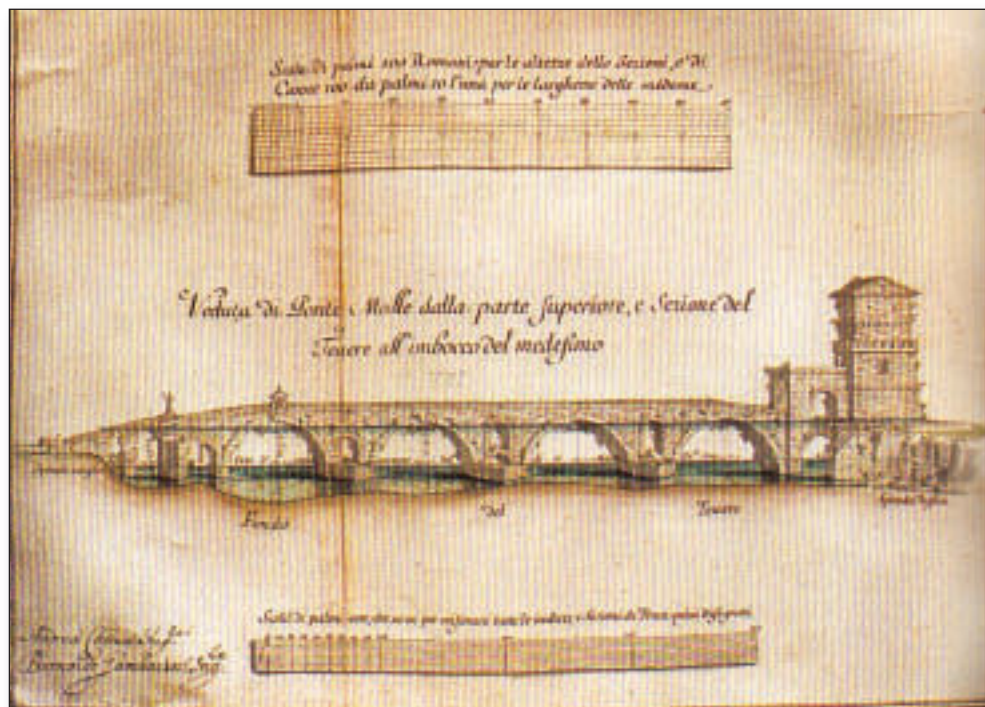 Scala di palmi 100 Romani per le altezze delle Sezioni, e di
Canne 100 da palmi 10 l'una per le larghezze delle medeme
Veduta di Ponte Molle dalla parte superiore, e Sezione del
Tevere all'imbocco del medesimo
Fondo del Tevere
Scala di palmi per misurare tutte le vedute e Sezioni de Ponti
Andrea Chiesa
Bernardo Gambarini Ing